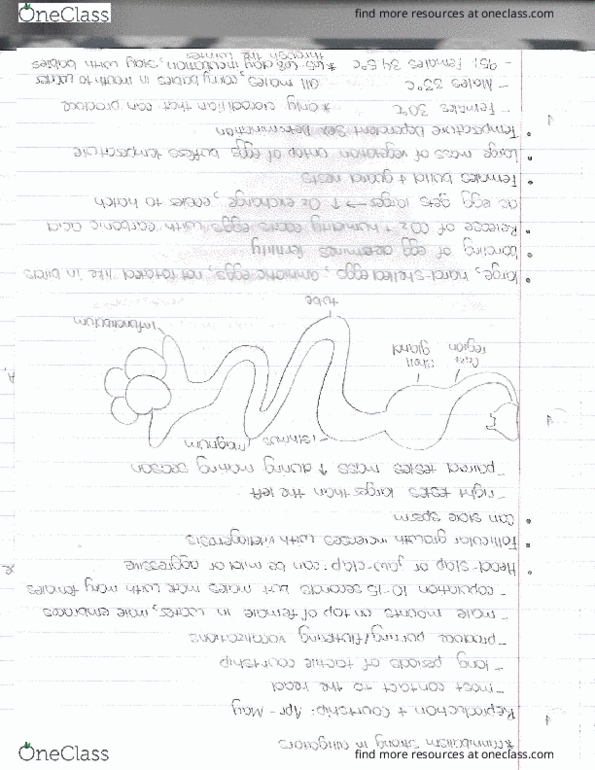 OneClass
find more resources at oneclass.com
*cannibalism strong in alligators
Reproduction + Courtship: Apr - May
- most contact to the head
- long periods of tactile courtship
- produce purring/fluttering vocalizations
- male mounts on top of female in water, male embraces
- copulation 10-15 seconds but males mate with many females
• Head-slap or jaw-clap: can be mild or aggressive
• Follicular growth increases with vitellogenesis
• can store sperm
- right testes larger than the left
- paired testes mass ↑ during mating season
isthmus
magnum
region
shell gland
tube
infundibulum
• large, hard-shelled eggs, amniotic eggs, not rotated like in birds
• banding of egg determines fertility
• Release of CO2 + humidity coats eggs with carbonic acid
as egg gets larger → ↑ O2 exchange, easier to hatch
• Females build + guard nests
• large mass of vegetation ontop of eggs buffers temperature
• Temperature Dependent Sex Determination
- Females 30°C
* only crocodilian that can produce
- Males 33°C
all males, carry babies in mouth to water
- 95% Females 34.5°C
*65 day incubation, stay with babies
through the winter
OneClass
find more resources at oneclass.com